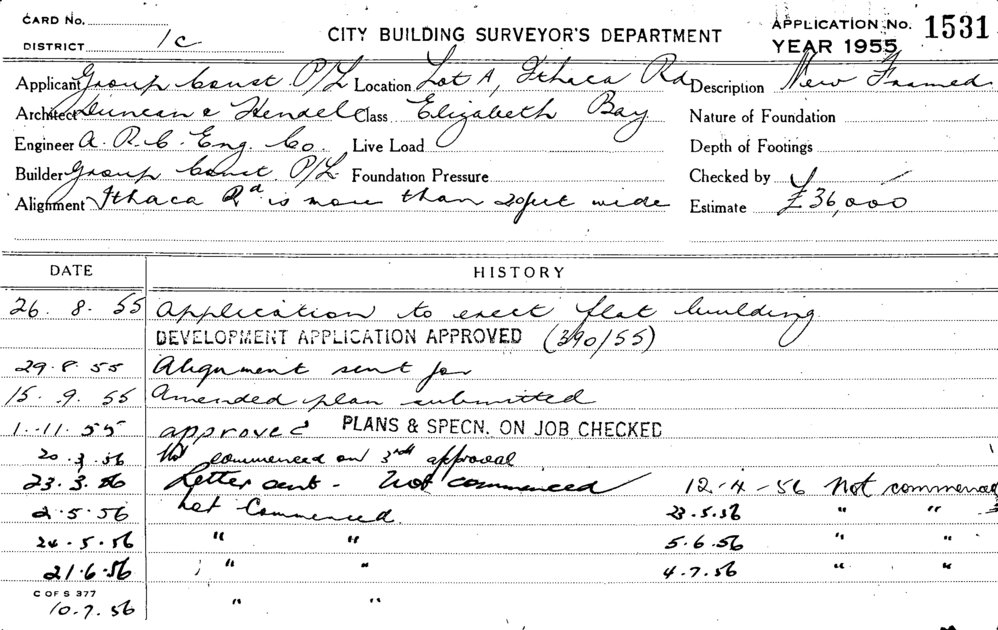 CARD No.
DISTRICT 1c
CITY BUILDING SURVEYOR'S DEPARTMENT
APPLICATION No. 1531
YEAR 1955
Applicant Group Const P/L Location Lot A, Ithaca Rd Description New Framed
Architect Duncan & Hendel Class Elizabeth Bay Nature of Foundation
Engineer A.R.C. Eng. Co. Live Load Depth of Footings
Builder Group Const P/L Foundation Pressure Checked by
Alignment Ithaca Rd is more than 20 feet wide Estimate £36,000
DATE HISTORY
26. 8. 55 Application to erect flat building
DEVELOPMENT APPLICATION APPROVED (390/55)
29.8.55 Alignment sent for
15. 9. 55 Amended plan submitted
1.11.55 approved PLANS & SPECN. ON JOB CHECKED
20.3.56 Not commenced on approval
23.3.56 Letter sent - Not commenced 12-4-56 Not commenced
2.5.56 Not Commenced. 23.5.56 " "
24.5.56 " " 5.6.56 " "
21.6.56 " " 4.7.56 " "
C OF S 377
10.7.56 " "